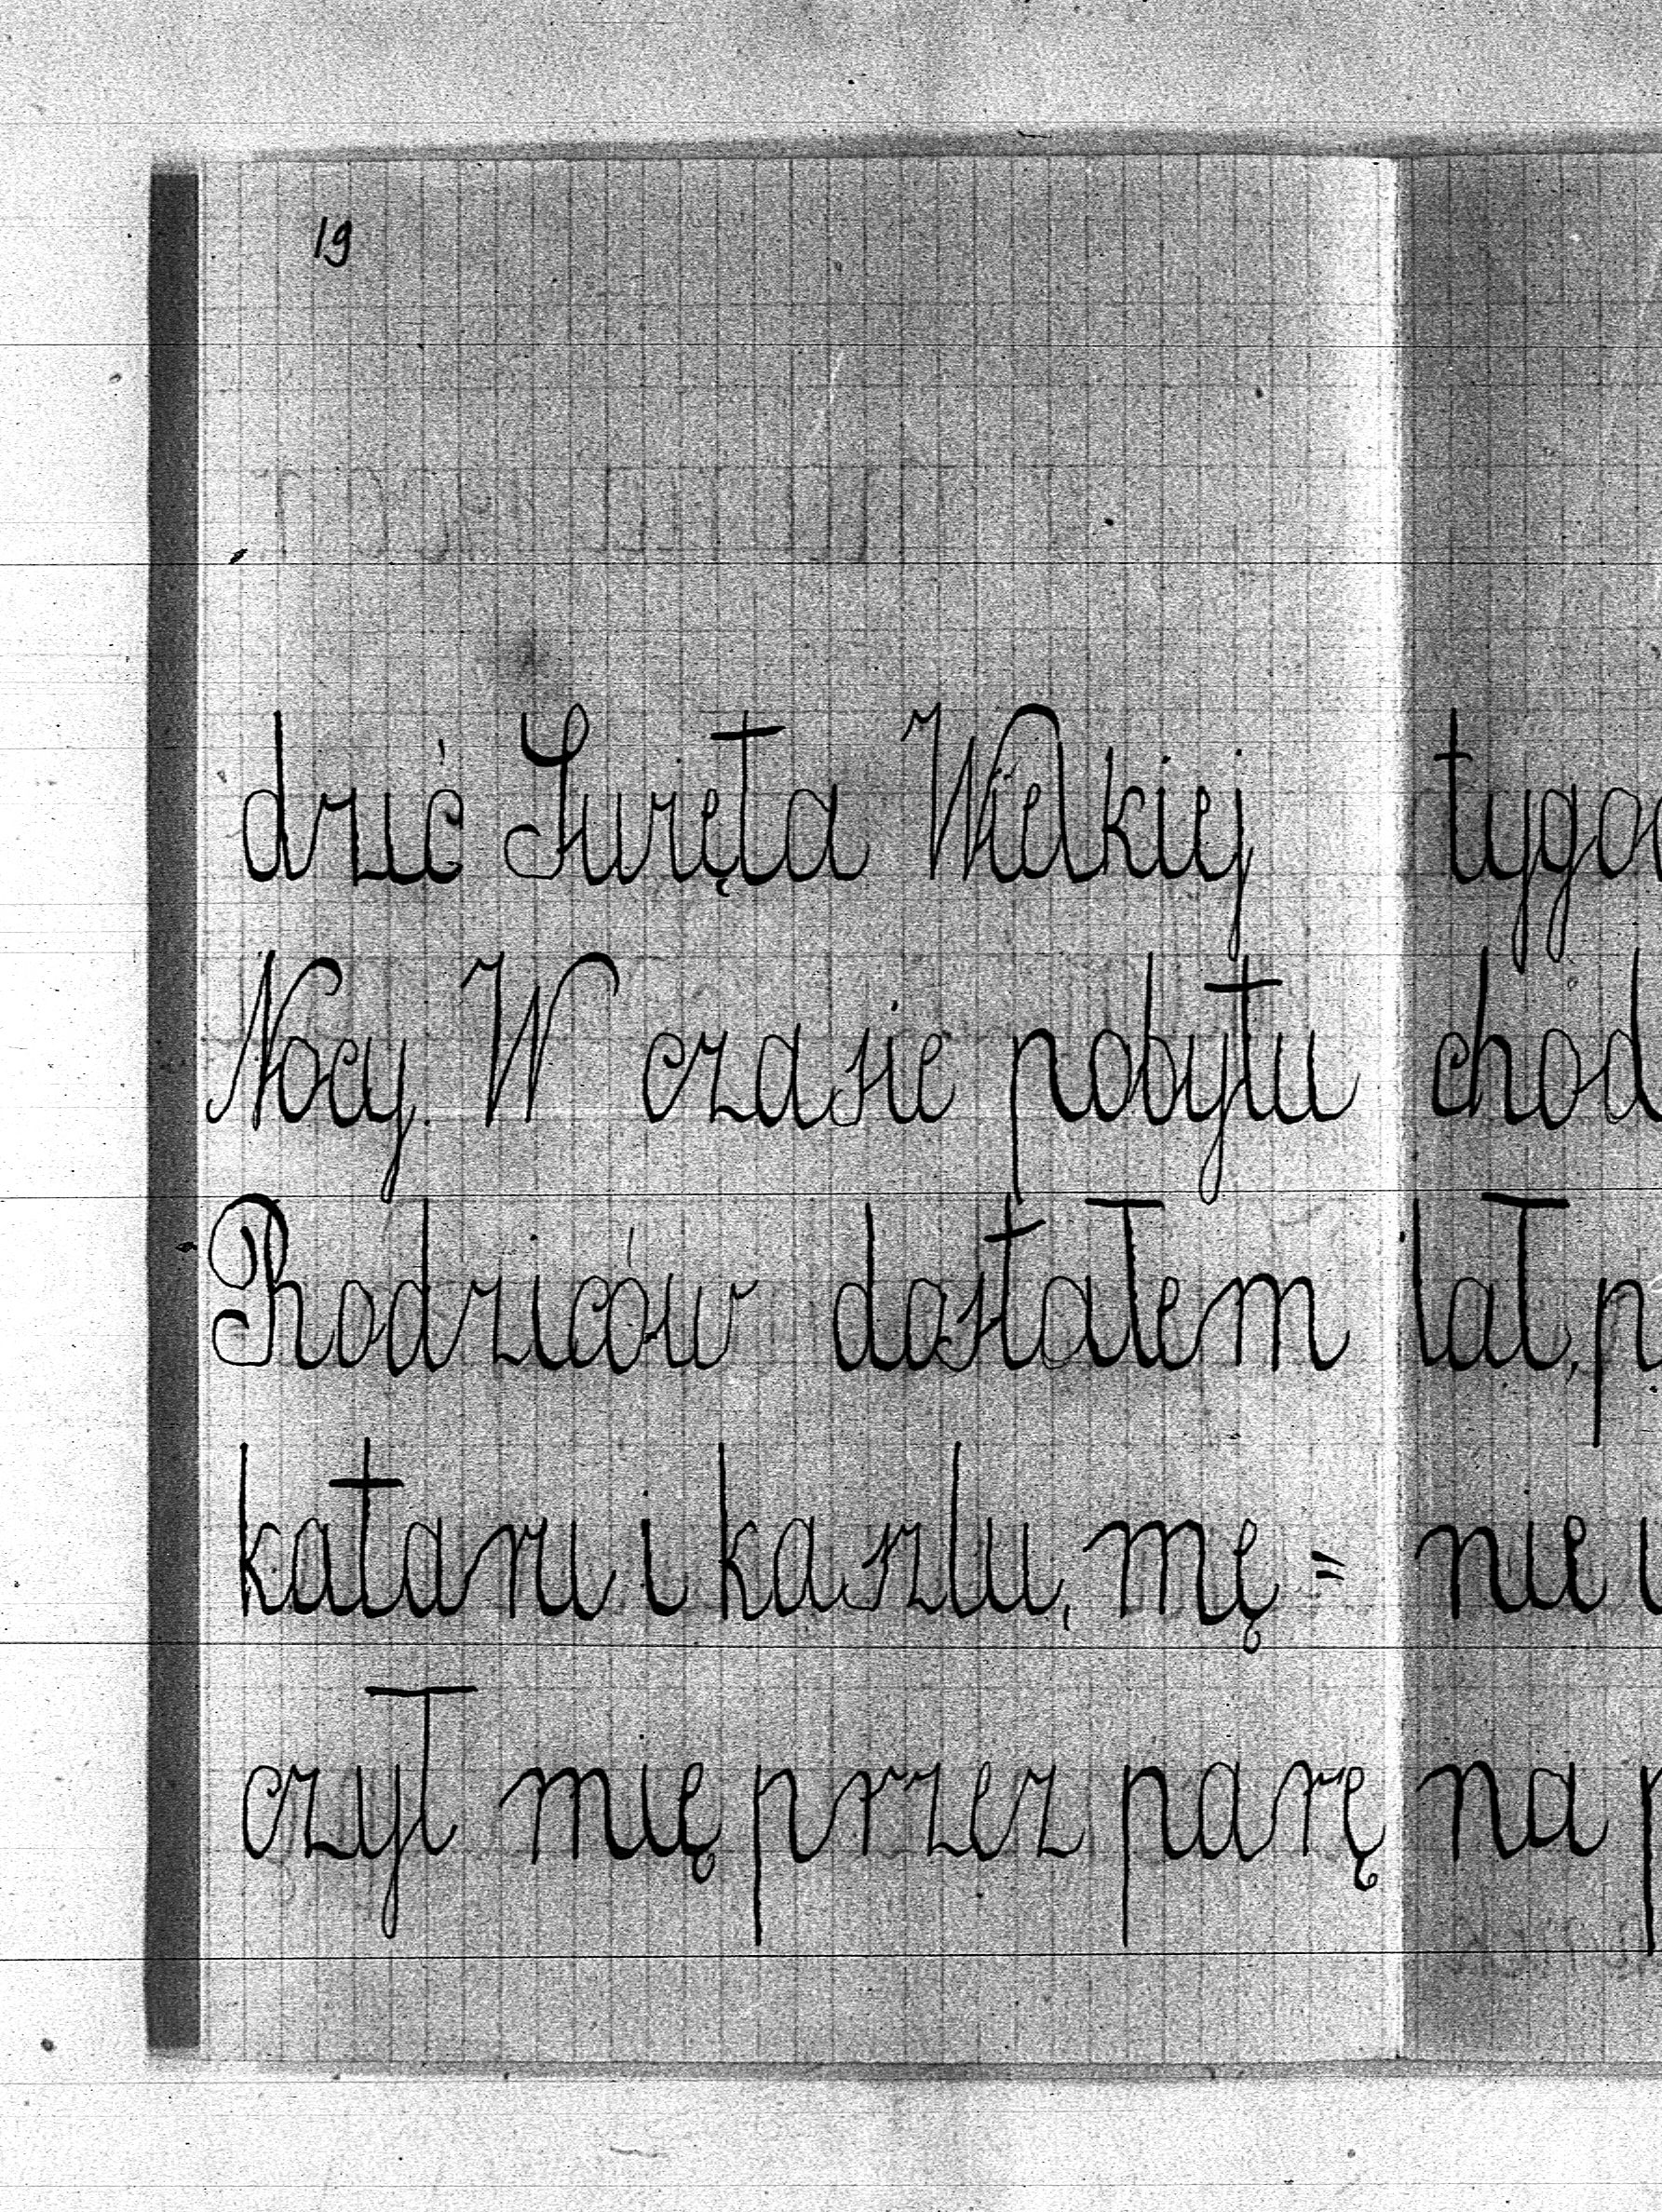 19
dzić Święta Wielkiej
Nocy. W czasie pobytu
Rodziców dostałem
kataru i kaszlu, mę=
czył mię przez parę
tygo
chod
lat, p
nie
na p